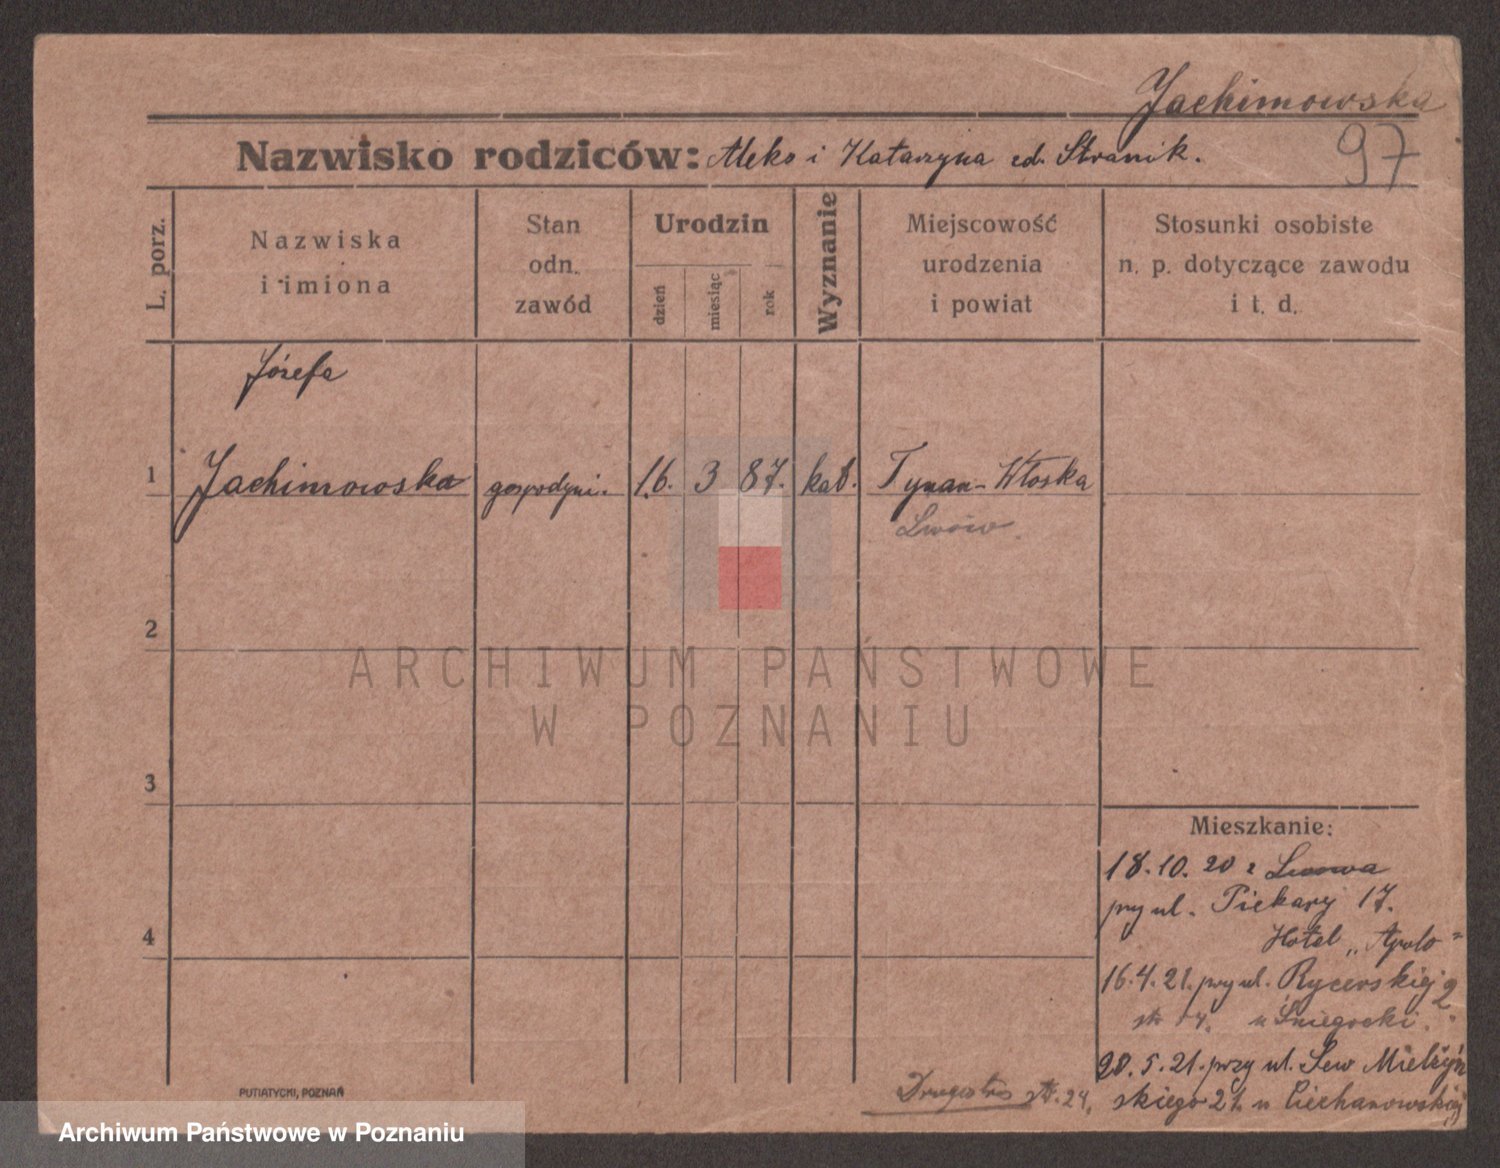 Jachimowska
97
Nazwisko rodziców: Aleks i Katarzyna zd. Stranik.
L. porz.
Nazwiska
i imiona
Stan
odn.
zawód
Urodzin
dzień
miesiąc
rok
Wyznanie
Miejscowość
urodzenia
i powiat
Stosunki osobiste
n. p. dotyczące zawodu
i t. d.
Józefa
1 Jachimowska gospodyni. 16. 3 87. kat. Tynan-Włoska
Lwów.
2
ARCHIWUM PAŃSTWOWE
W POZNANIU
3
Mieszkanie:
18.10.20 z Lwowa
przy ul. Piekary 17.
4
Hotel „Apolo"
16.4.21. przy ul. Rycerskiej 2
u Śniegocki.
28.5.21. przy ul. Sew Mielżyń
skiego 21. u Ciechanowskiej
24.
PUTIATYCKI, POZNAŃ
Archiwum Państwowe w Poznaniu